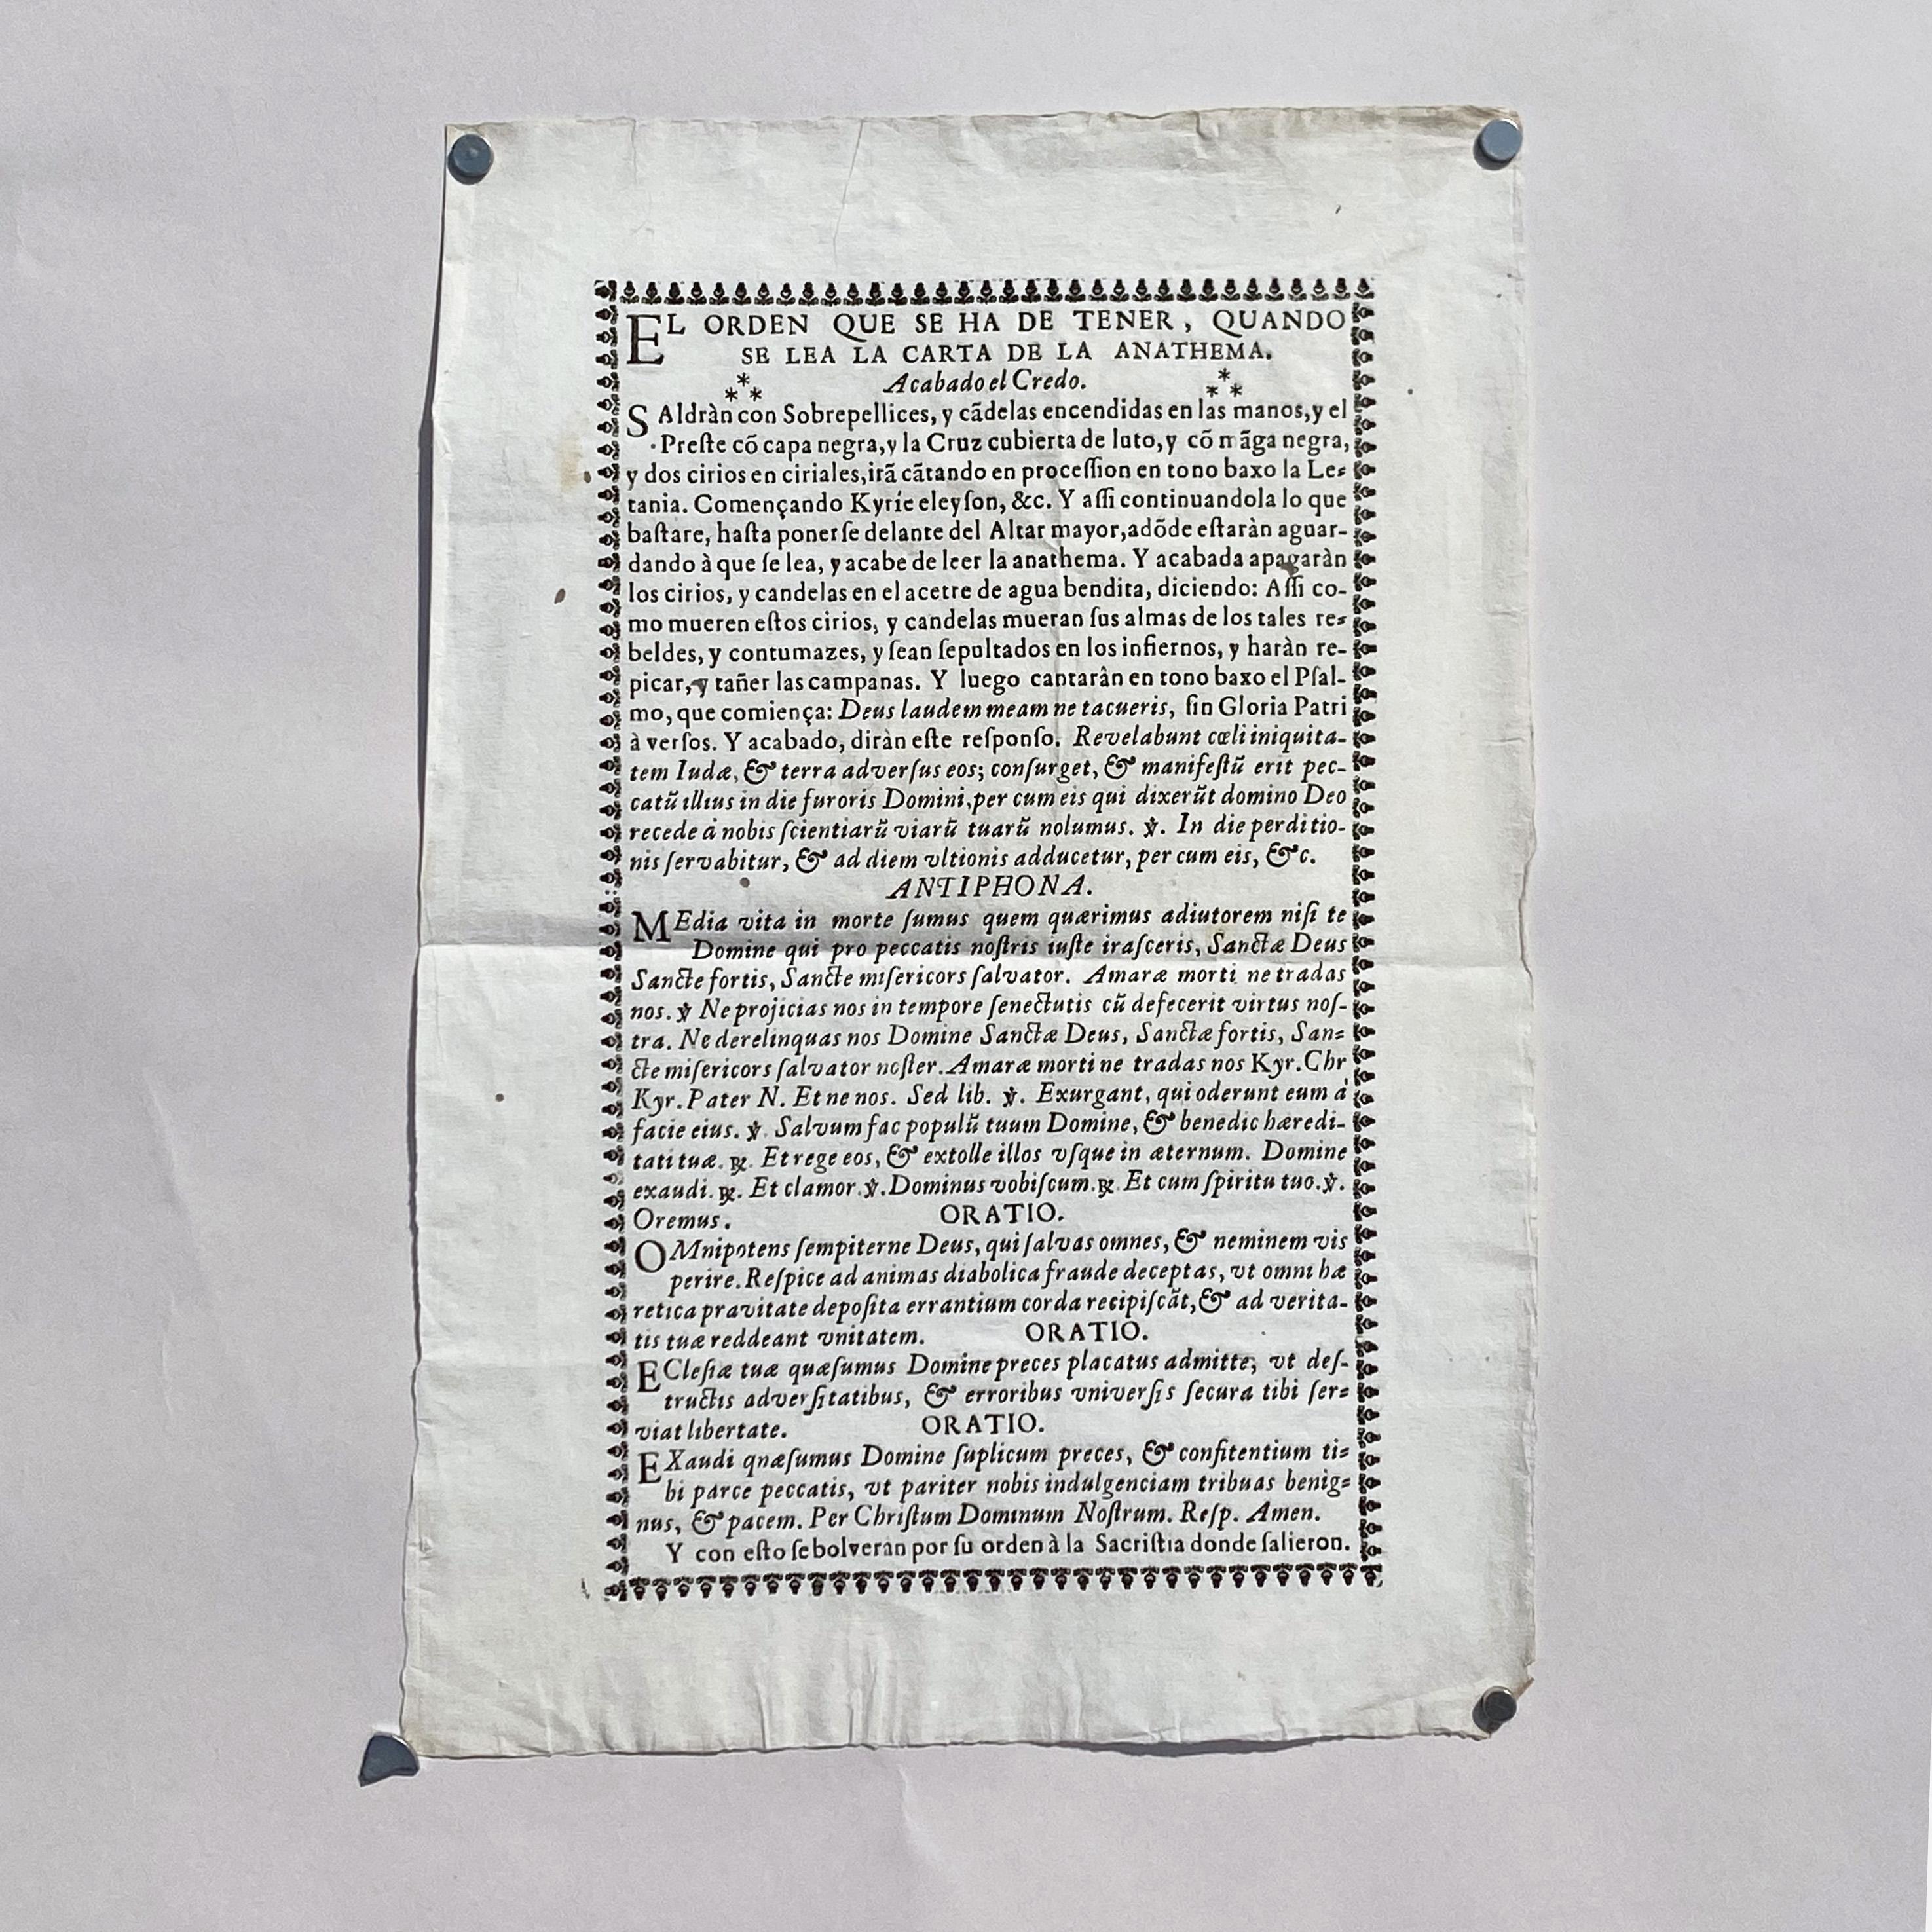 EL ORDEN QUE SE HA DE TENER, QUANDO
SE LEA LA CARTA DE LA ANATHEMA.
*** Acabado el Credo. ***
SAldràn con Sobrepellices, y cãdelas encendidas en las manos, y el
Preſte cõ capa negra, y la Cruz cubierta de luto, y cõ mãga negra,
y dos cirios en ciriales, irã cãtando en proceſſion en tono baxo la Le-
tania. Començando Kyríe eleyſon, &c. Y aſſi continuandola lo que
baſtare, haſta ponerſe delante del Altar mayor, adõde eſtaràn aguar-
dando à que ſe lea, y acabe de leer la anathema. Y acabada apagaràn
los cirios, y candelas en el acetre de agua bendita, diciendo: Aſſi co-
mo mueren eſtos cirios, y candelas mueran ſus almas de los tales re-
beldes, y contumazes, y ſean ſepultados en los infiernos, y haràn re-
picar, y tañer las campanas. Y luego cantarân en tono baxo el Pſal-
mo, que comiença: Deus laudem meam ne tacueris, ſin Gloria Patri
à verſos. Y acabado, diràn eſte reſponſo. Revelabunt cœli iniquita-
tem Iudæ, & terra adverſus eos; conſurget, & manifeſtũ erit pec-
catũ illius in die furoris Domini, per cum eis qui dixerũt domino Deo
recede à nobis ſcientiarũ viarũ tuarũ nolumus. ℣. In die perditio-
nis ſervabitur, & ad diem vltionis adducetur, per cum eis, &c.
ANTIPHONA.
MEdia vita in morte ſumus quem quærimus adiutorem niſi te
Domine qui pro peccatis noſtris iuſte iraſceris, Sanctæ Deus
Sancte fortis, Sancte miſericors ſalvator. Amaræ morti ne tradas
nos. ℣ Ne projicias nos in tempore ſenectutis cũ defecerit virtus noſ-
tra. Ne derelinquas nos Domine Sanctæ Deus, Sanctæ fortis, San-
cte miſericors ſalvator noſter. Amaræ morti ne tradas nos Kyr. Chr
Kyr. Pater N. Et ne nos. Sed lib. ℣. Exurgant, qui oderunt eum à
facie eius. ℣. Salvum fac populũ tuum Domine, & benedic hæredi-
tati tuæ. ℟. Et rege eos, & extolle illos vſque in æternum. Domine
exaudi. ℟. Et clamor. ℣. Dominus vobiſcum. ℟. Et cum ſpiritu tuo. ℣.
Oremus. ORATIO.
OMnipotens ſempiterne Deus, qui ſalvas omnes, & neminem vis
perire. Reſpice ad animas diabolica fraude deceptas, vt omni hæ
retica pravitate depoſita errantium corda recipiſcãt, & ad verita-
tis tuæ reddeant vnitatem. ORATIO.
ECleſiæ tuæ quæſumus Domine preces placatus admitte, vt deſ-
tructis adverſitatibus, & erroribus vniverſis ſecura tibi ſer-
viat libertate. ORATIO.
EXaudi qnæſumus Domine ſuplicum preces, & confitentium ti-
bi parce peccatis, vt pariter nobis indulgenciam tribuas benig-
nus, & pacem. Per Chriſtum Dominum Noſtrum. Reſp. Amen.
Y con eſto ſe bolveràn por ſu orden à la Sacriſtia donde ſalieron.